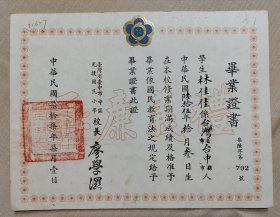 畢業證書
字第 792
學生林佳佳係台灣省台中縣人
中華民國陸拾年拾月叁日生
在本校修業期滿成績及格准予
畢業依國民教育法之規定給予
畢業證書此證
臺灣省臺中市中區
光復國民小學
校長 廖學
中華民國柒拾年柒月壹日